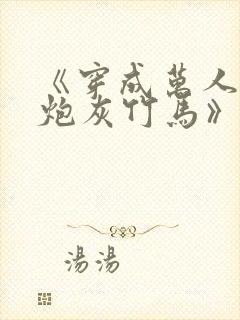 《穿成萬人
炮灰竹馬》
湯湯